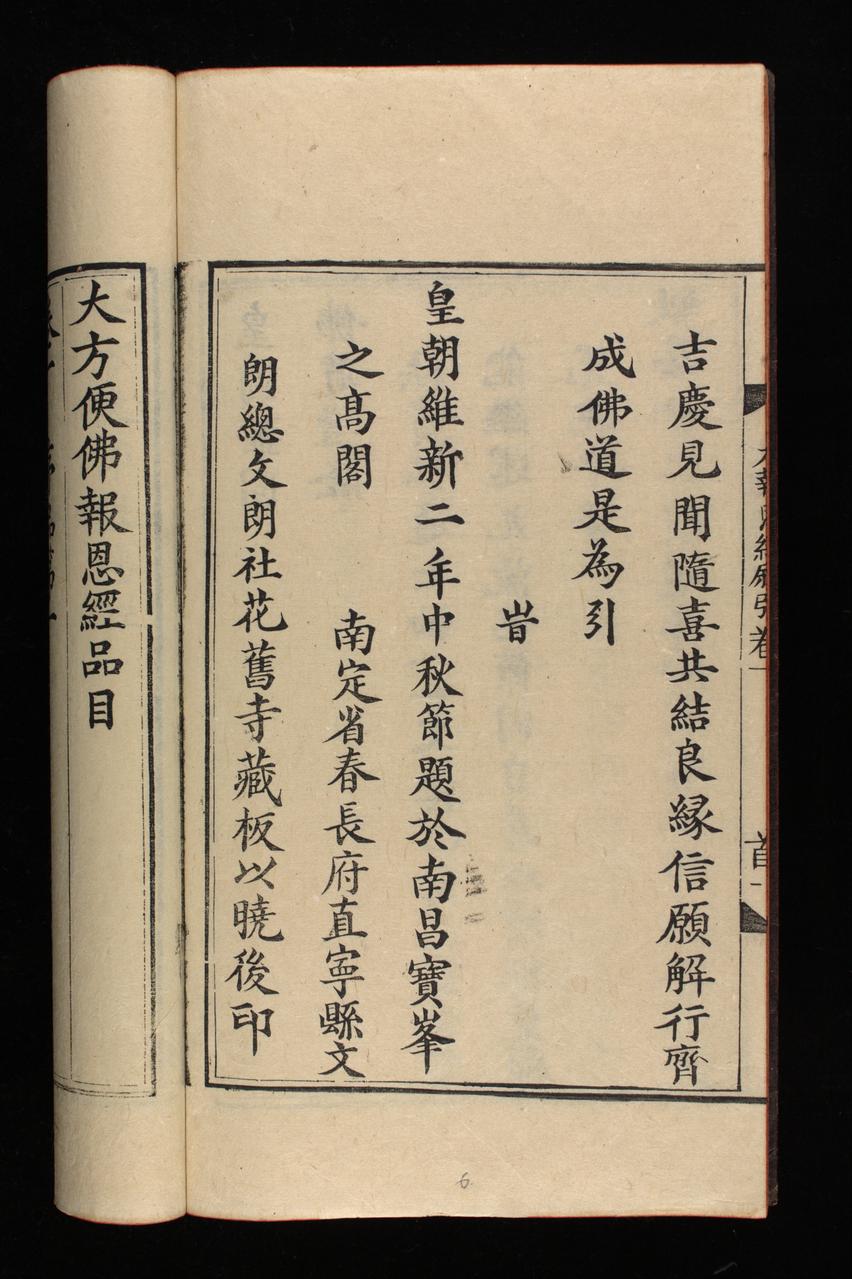 大報恩經願引卷一
首一
吉慶見聞隨喜共結良緣信願解行齊
成佛道是為引
旹
皇朝維新二年中秋節題於南昌寶峯
之高閣
南定省春長府直寧縣文
朗總文朗社花舊寺藏板以曉後印
大方便佛報恩經品目
6